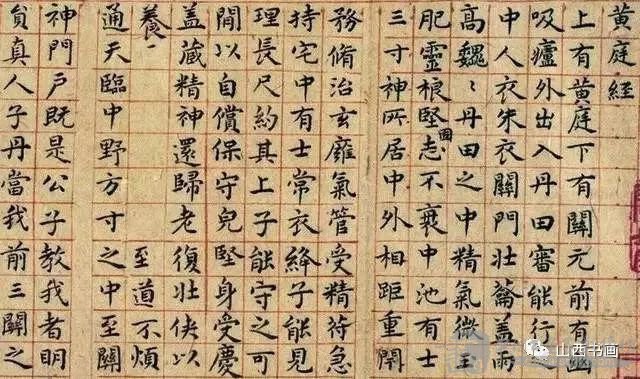 黄庭經
上有黄庭下有關元前有幽
吸廬外出入丹田審能行
中人衣朱衣關門壮籥盖兩
高魏〻丹田之中精氣微玉
肥靈根堅固志不衰中池有士
三寸神所居中外相距重閇
務脩治玄癰氣管受精苻急
持宅中有士常衣絳子能見
理長尺約其上子能守之可
閒以自償保守兒堅身受慶
盖藏精神還歸老復壮侠以
養 至道不煩
通天臨中野方寸之中至關
神門户既是公子教我者明
真人子丹當我前三關之
山西书画